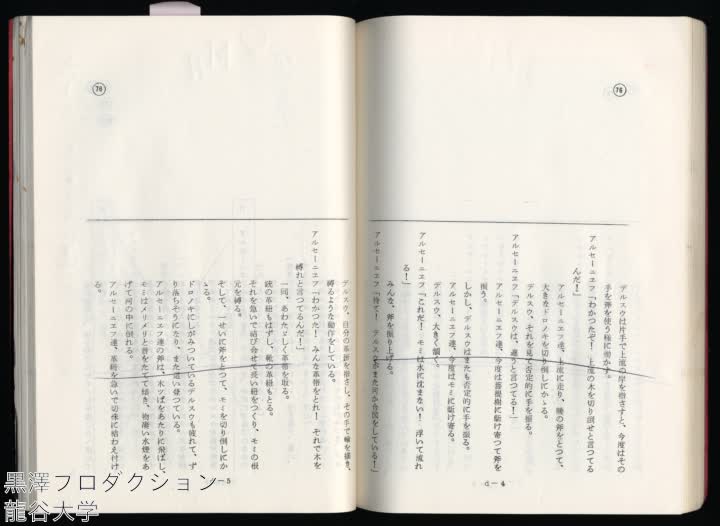 76
デルスウは片手で上流の岸を指さすと、今度はその
手を斧を使う様に動かす。
アルセーニエフ「わかつたぞ! 上流の木を切り倒せと言つてる
んだ!」
アルセーニエフ達、上流に走り、腰の斧をとつて、
大きなドロノキを切り倒しにかゝる。
デルスウ、それを見て否定的に手を振る。
アルセーニエフ「デルスウは、違うと言つてる!」
アルセーニエフ達、今度は菩提樹に駈け寄つて斧を
振う。
しかし、デルスウはまたも否定的に手を振る。
アルセーニエフ達、今度はモミに駈け寄る。
デルスウ、大きく頷く。
アルセーニエフ「これだ! モミは水に沈まない! 浮いて流れ
る!」
みんな、斧を振り上げる。
アルセーニエフ「待て! デルスウがまた何か合図をしている!」
d-4
76
デルスウ、自分の革帯を指さし、その手で輪を描き、
縛るような動作をしている。
アルセーニエフ「わかつた! みんな革帯をとれ! それで木を
縛れと言つてるんだ!」
一同、あわたゞしく革帯を取る。
銃の革紐もはずし、靴の革紐もとる。
それを急いで結び合せて長い紐をつくり、モミの根
元を縛る。
そして、一せいに斧をとつて、モミを切り倒しにか
ゝる。
ドロノキにしがみついているデルスウも疲れて、ず
り落ちそうになり、また這い登つている。
アルセーニエフ達の斧は、木ツぱをあたりに飛ばし、
モミはメリメリと音をたてて傾き、物凄い水煙をあ
げて河の中に倒れる。
アルセーニエフ達、革紐を急いで切株に結わえ付け
る。
-5
黒澤プロダクション
龍谷大学